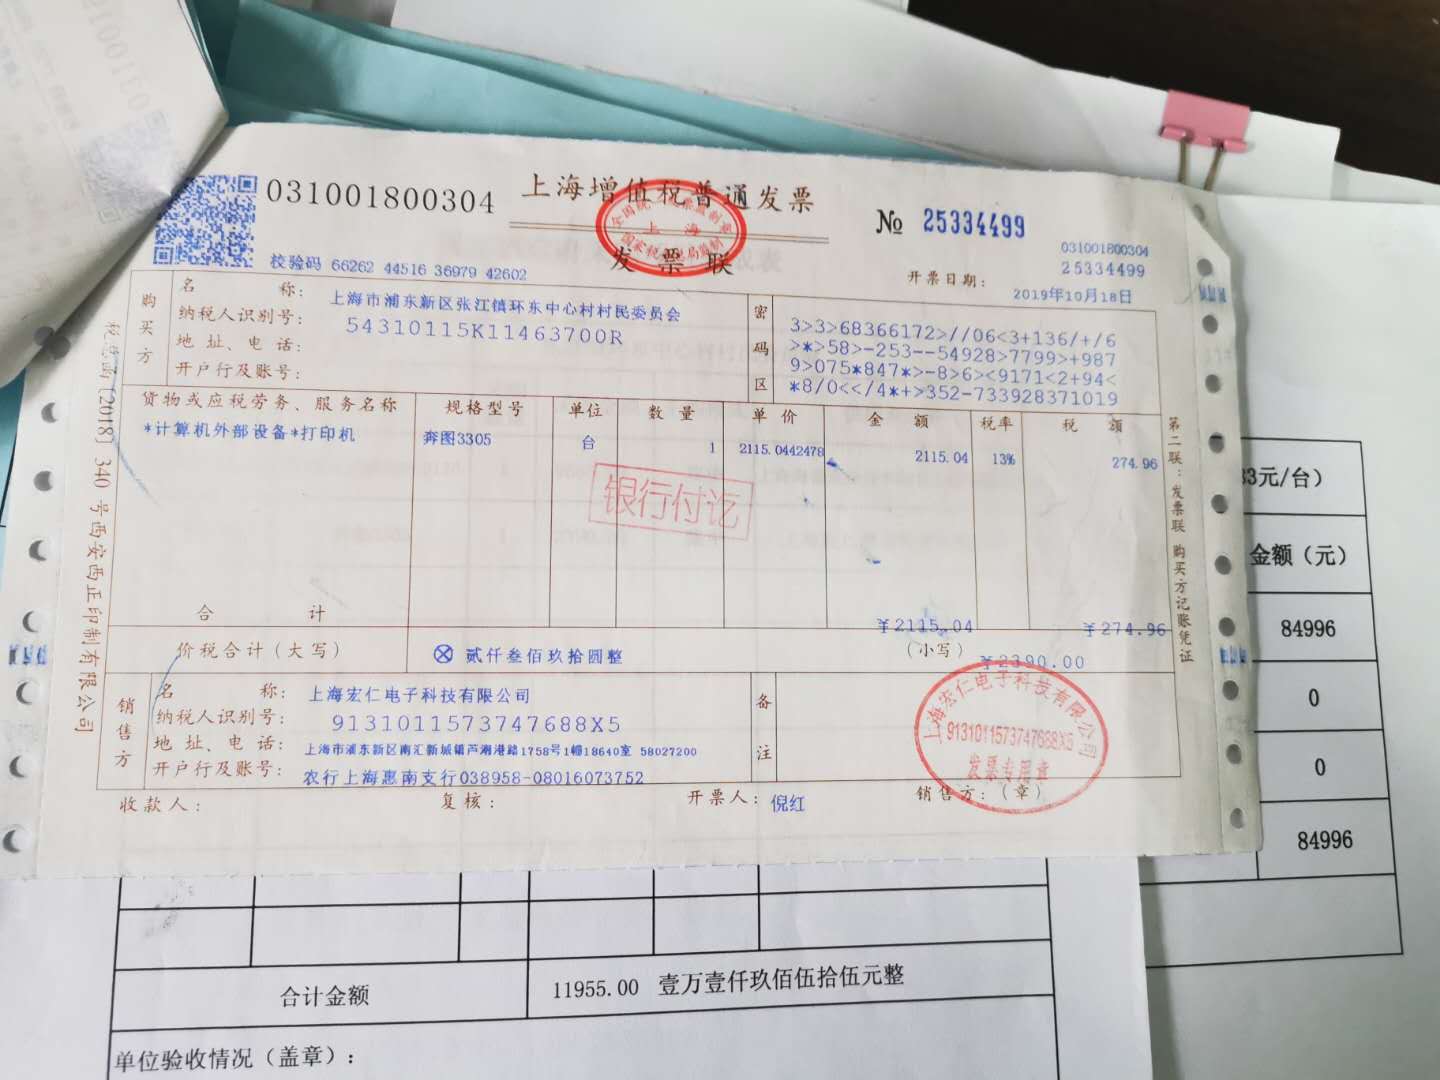 031001800304
上海增值税普通发票
发票联
全国统一发票监制章
上海
国家税务总局监制
№ 25334499
031001800304
25334499
校验码 66262 44516 36979 42602
开票日期：
2019年10月18日
购买方
名称：
上海市浦东新区张江镇环东中心村村民委员会
纳税人识别号：
54310115K11463700R
地址、电话：
开户行及账号：
密码区
3>3>68366172>//06<3+136/+/6
>*>58>-253--54928>7799>+987
9>075*847*>-8>6><9171<2+94<
*8/0<</4*+>352-733928371019
货物或应税劳务、服务名称 规格型号 单位 数量 单价 金额 税率 税额
*计算机外部设备*打印机 奔图3305 台 1 2115.0442478 2115.04 13% 274.96
银行付讫
合计 ¥2115.04 ¥274.96
价税合计（大写） ⊗ 贰仟叁佰玖拾圆整 （小写） ¥2390.00
销售方
名称：
上海宏仁电子科技有限公司
纳税人识别号：
9131011573747688X5
地址、电话：
上海市浦东新区南汇新城镇芦潮港路1758号1幢18640室 58027200
开户行及账号：
农行上海惠南支行038958-08016073752
备注
上海宏仁电子科技有限公司
9131011573747688X5
发票专用章
收款人： 复核： 开票人： 倪红 销售方：（章）
号西安西正印制有限公司
第二联：发票联 购买方记账凭证
03100
元/台）
金额（元）
84996
0
0
84996
合计金额 11955.00 壹万壹仟玖佰伍拾伍元整
单位验收情况（盖章）：